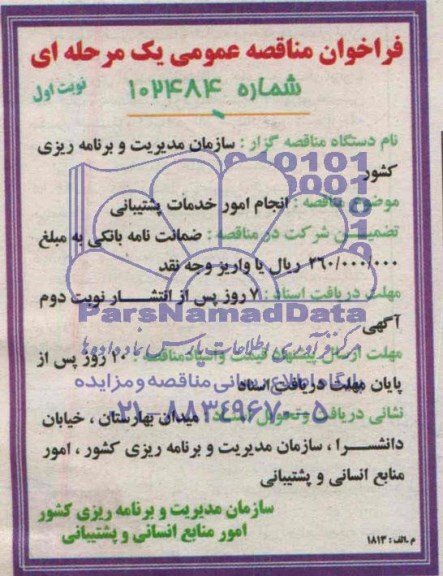 فراخوان مناقصه عمومی یک مرحله ای
شماره ۱۰۲۴۸۴
نوبت اول
نام دستگاه مناقصه گزار : سازمان مدیریت و برنامه ریزی
کشور
موضوع مناقصه : انجام امور خدمات پشتیبانی
تضمین شرکت در مناقصه : ضمانت نامه بانکی به مبلغ
۲۶۰/۰۰۰/۰۰۰ ریال یا واریز وجه نقد
مهلت دریافت اسناد : ۷ روز پس از انتشار نوبت دوم
ParsNamadData
آگهی
مرکز فرآوری اطلاعات پارس نماد داده ها
مهلت ارسال پیشنهاد قیمت و اسناد مناقصه : ۱۰ روز پس از
پایگاه اطلاع رسانی مناقصه و مزایده
پایان مهلت دریافت اسناد
۰۲۱-۸۸۳۴۹۶۷۰-۵
نشانی دریافت و تحویل اسناد : میدان بهارستان ، خیابان
دانشسرا ، سازمان مدیریت و برنامه ریزی کشور ، امور
منابع انسانی و پشتیبانی
سازمان مدیریت و برنامه ریزی کشور
امور منابع انسانی و پشتیبانی
م .الف : ۱۸۱۳